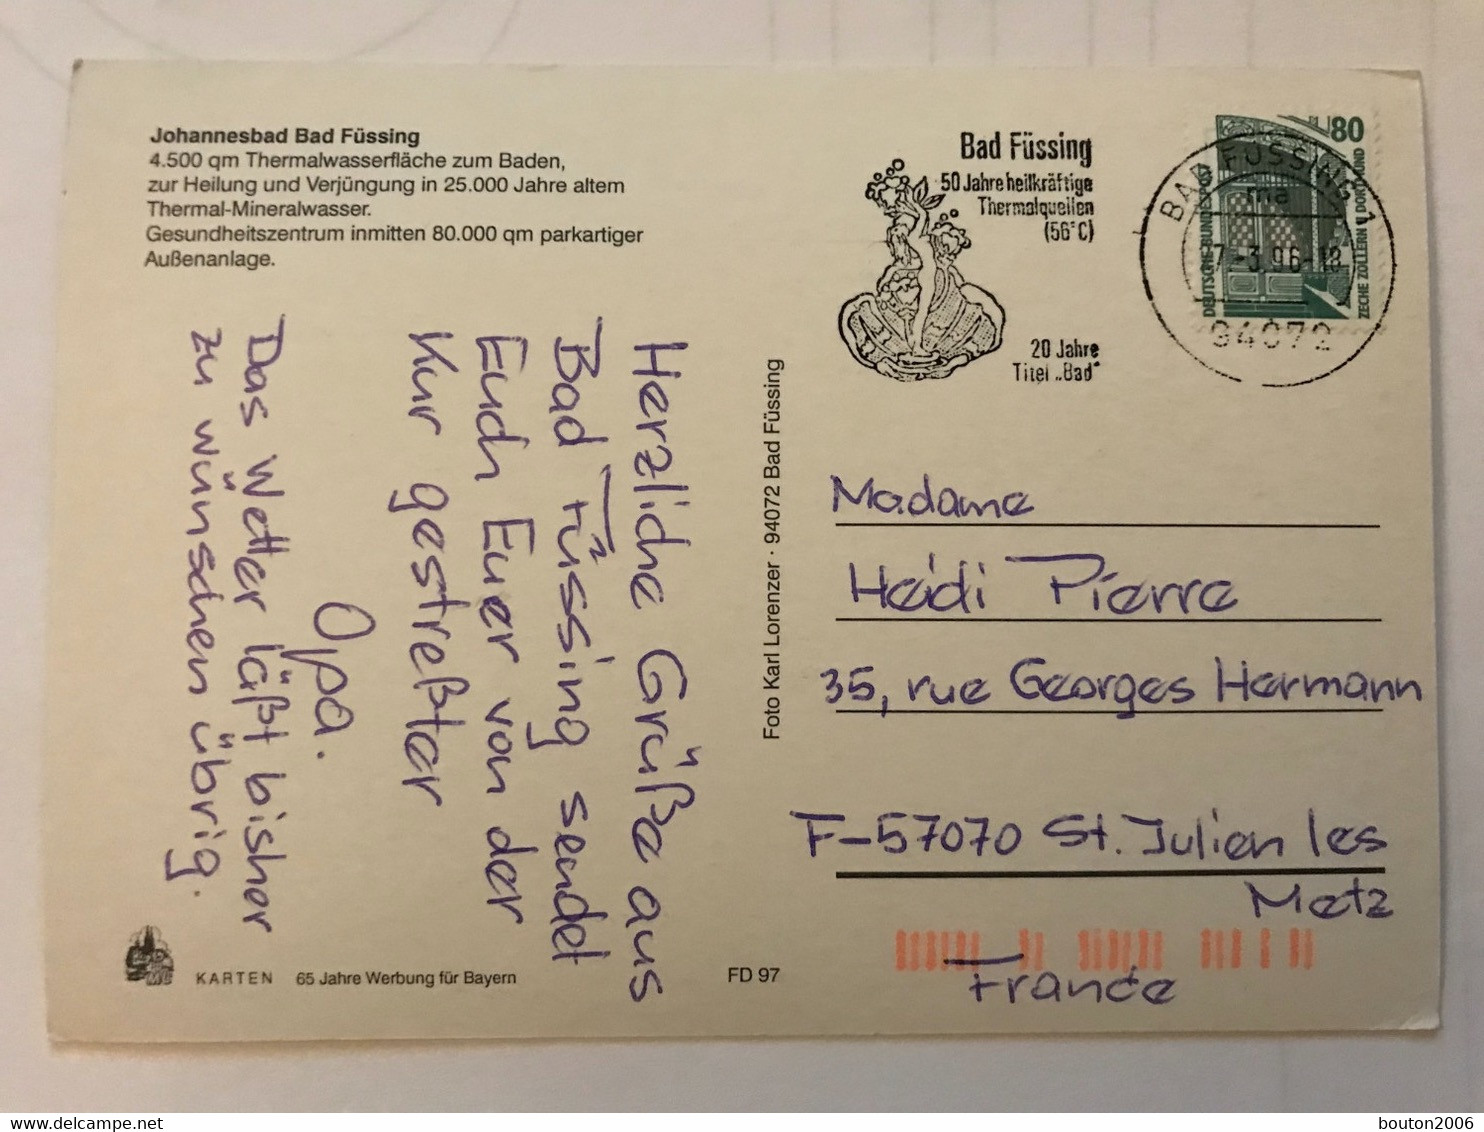 Johannesbad Bad Füssing
4.500 qm Thermalwasserfläche zum Baden,
zur Heilung und Verjüngung in 25.000 Jahre altem
Thermal-Mineralwasser.
Gesundheitszentrum inmitten 80.000 qm parkartiger
Außenanlage.
Herzliche Grüße aus
Bad Füssing sendet
Euch Euer von der
Kur gestreßter
Opa.
Das Wetter läßt bisher
zu wünschen übrig.
KARTEN 65 Jahre Werbung für Bayern
FD 97
Foto Karl Lorenzer · 94072 Bad Füssing
Bad Füssing
50 Jahre heilkräftige
Thermalquellen
(56°C)
20 Jahre
Titel „Bad“
80
DEUTSCHE BUNDESPOST
ZECHE ZOLLERN II DORTMUND
BAD FÜSSING 1
ma
7.-3.96-18
94072
Madame
Heidi Pierre
35, rue Georges Hermann
F-57070 St. Julien les
Metz
France
delcampe.net
bouton2006